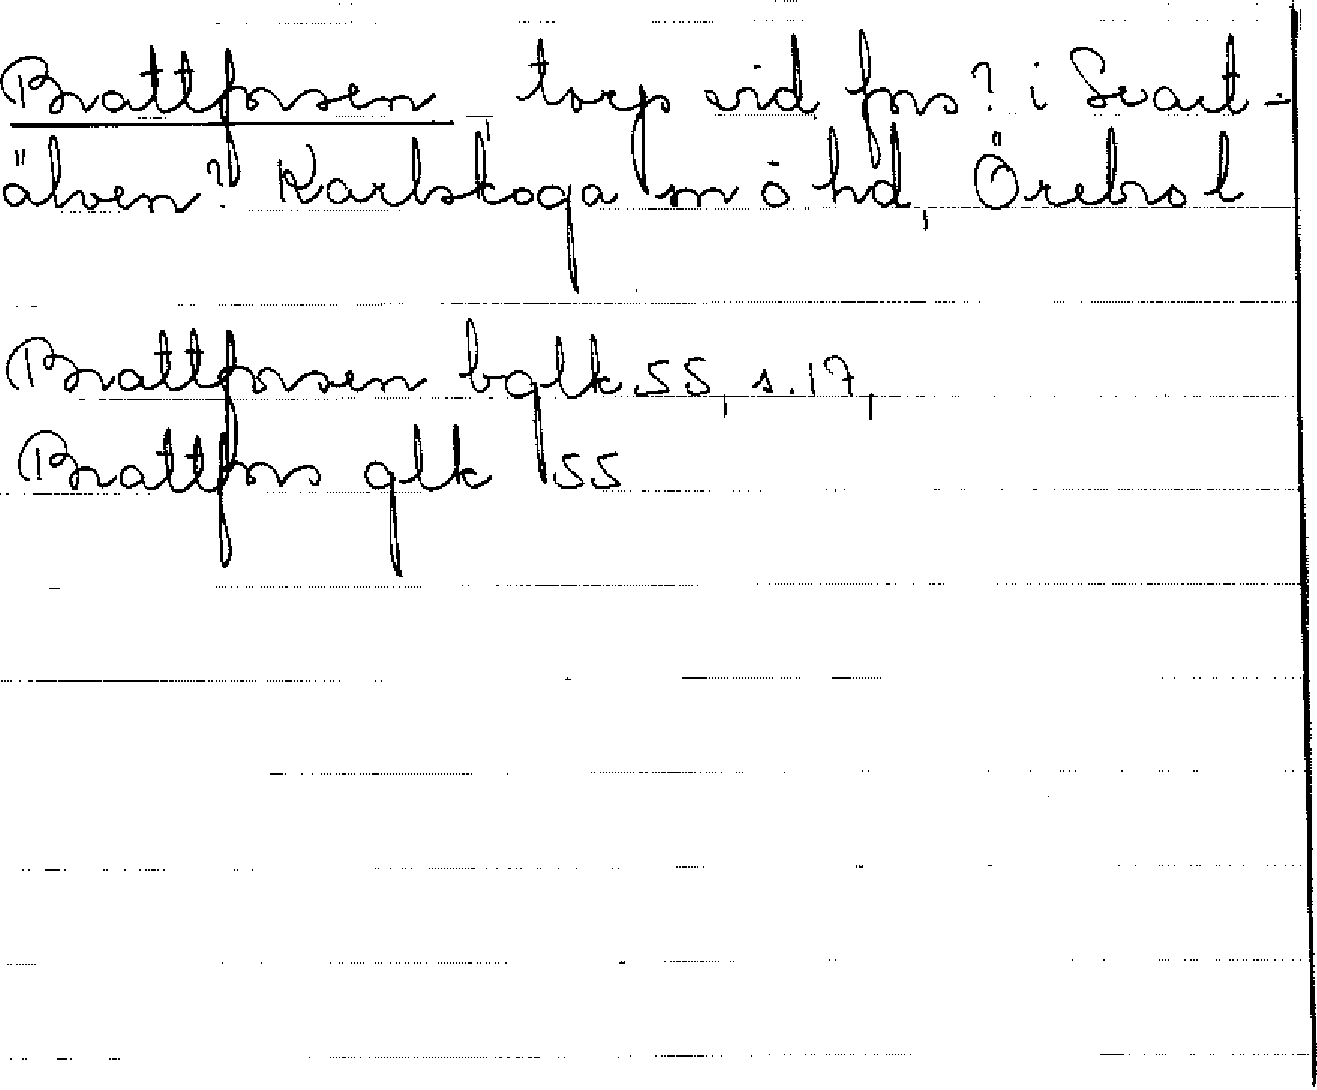 Brattforsen torp vid fors? i Svart-
älven? Karlskoga sn o hd, Örebro l
Brattforsen bglk 55, s. 17,
Brattfors glk 55